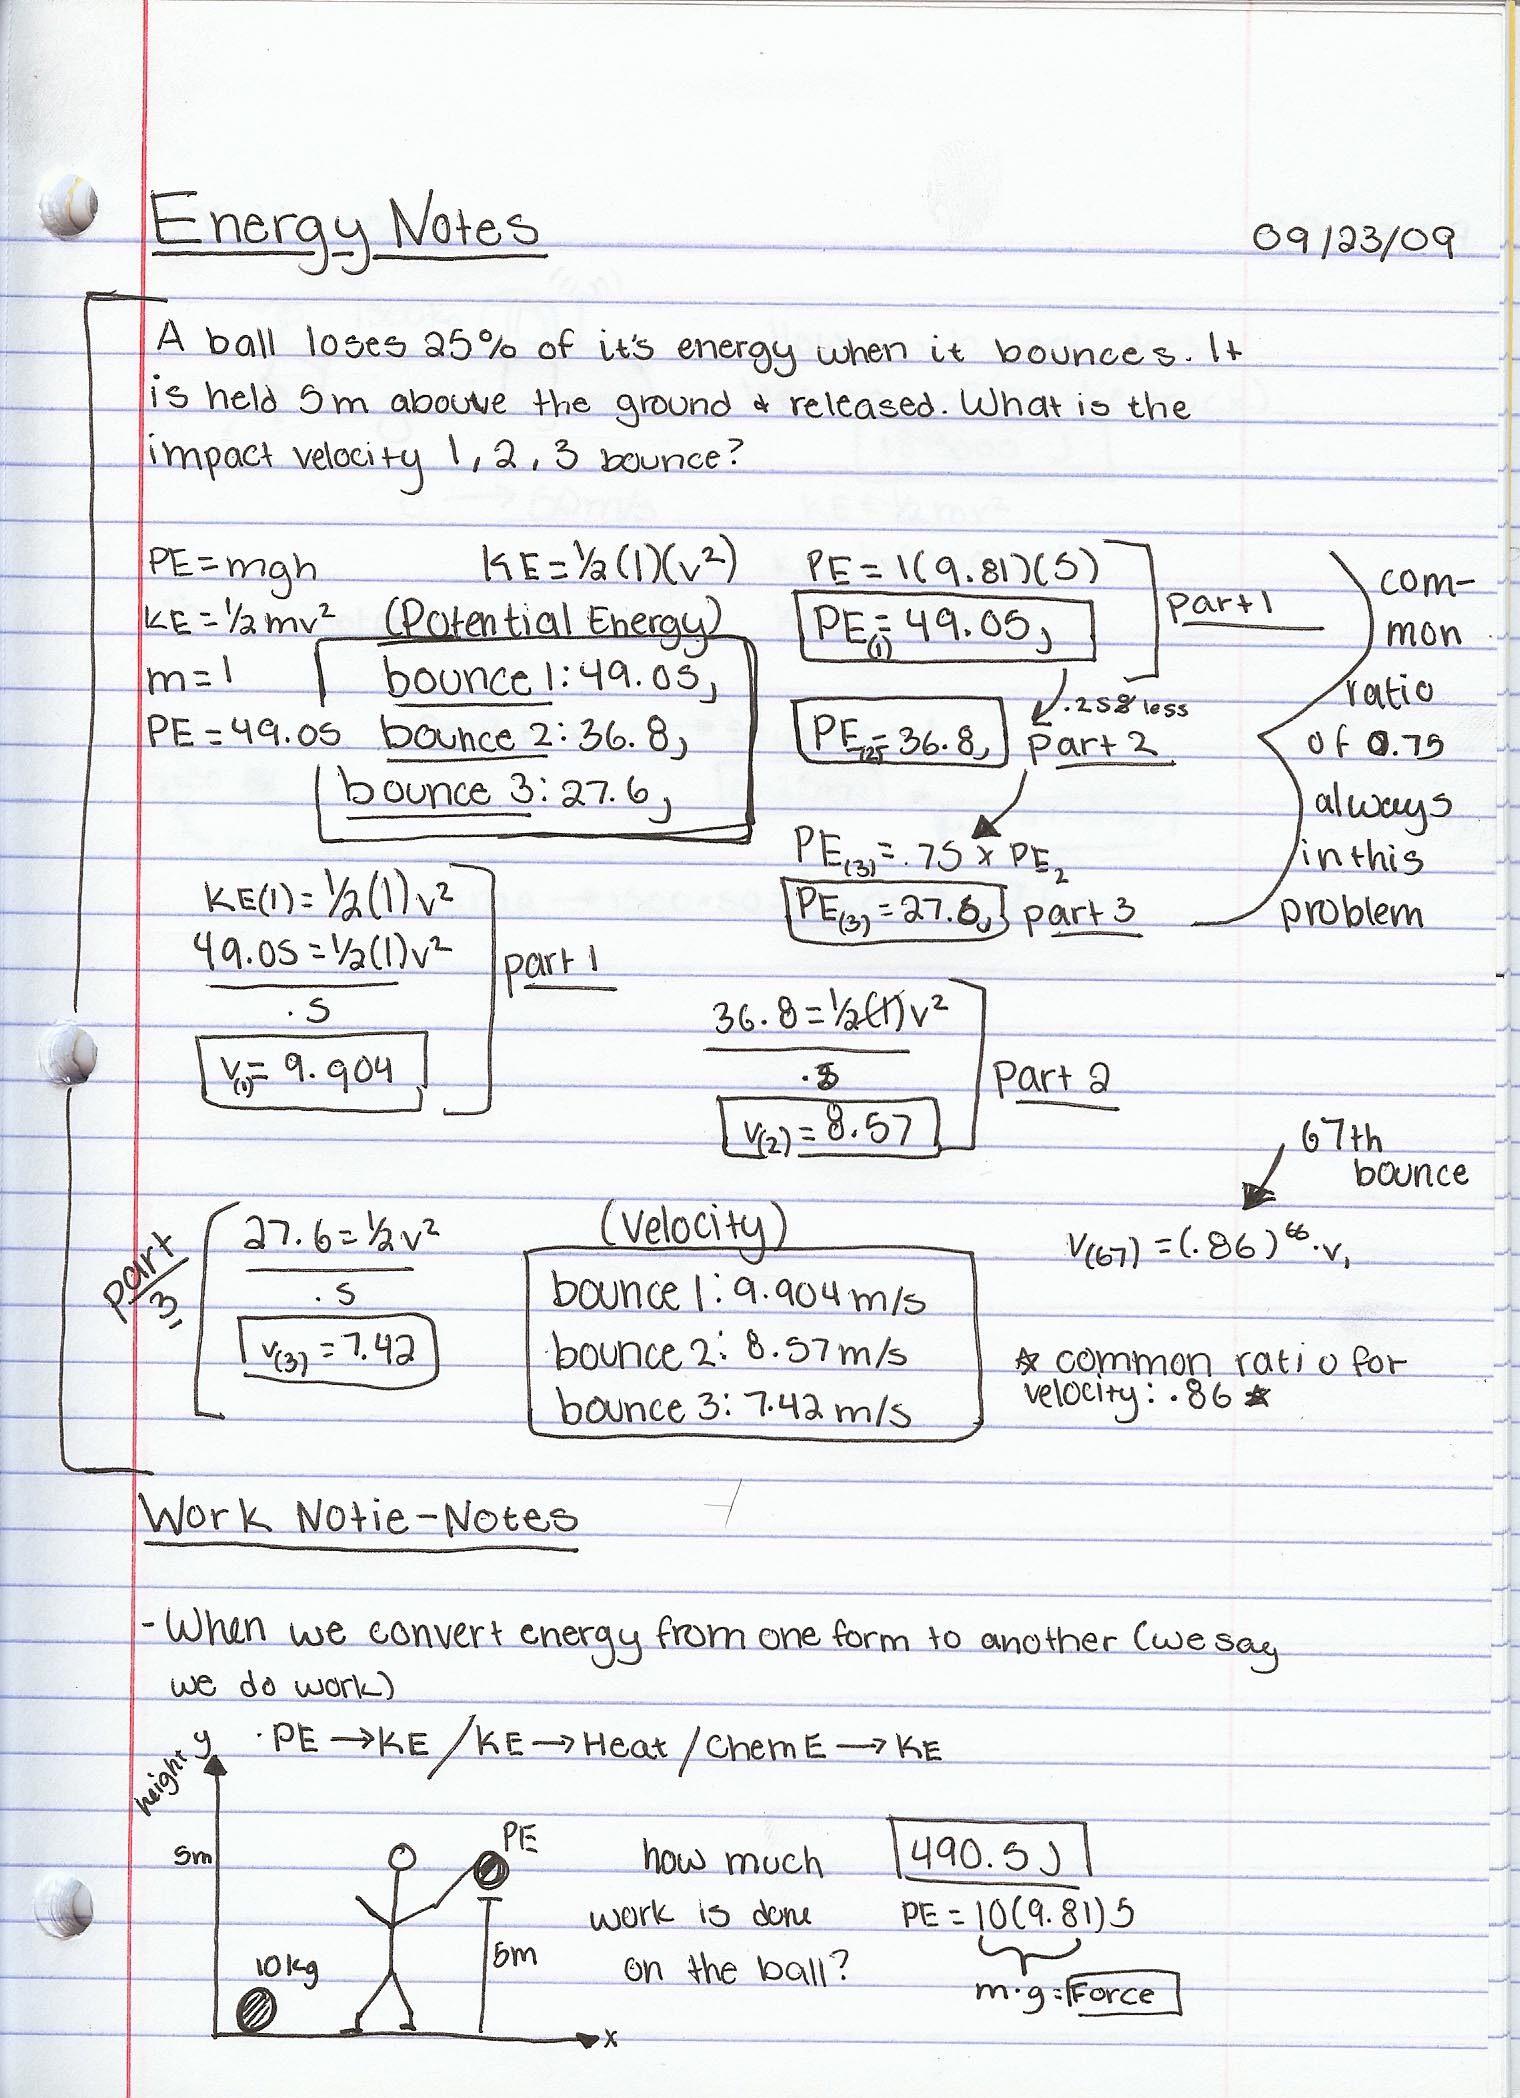 Energy Notes
09/23/09
A ball loses 25% of it's energy when it bounces. It
is held 5m abouve the ground & released. What is the
impact velocity 1, 2, 3 bounce?
PE=mgh
KE=½mv²
m=1
PE=49.05
KE=½(1)(v²)
(Potential Energy)
bounce 1: 49.05J
bounce 2: 36.8J
bounce 3: 27.6J
PE=1(9.81)(5)
PE(1)=49.05J
part 1
.25% less
PE(2)=36.8J
part 2
PE(3)=.75 x PE₂
PE(3)=27.6J
part 3
com-
mon
ratio
of 0.75
always
in this
problem
KE(1)=½(1)v²
49.05=½(1)v²
.5
V(1)=9.904
part 1
36.8=½(1)v²
.5
V(2)=8.57
Part 2
67th
bounce
V(67)=(.86)⁶⁶·V₁
part
3
27.6=½v²
.5
V(3)=7.42
(Velocity)
bounce 1: 9.904m/s
bounce 2: 8.57m/s
bounce 3: 7.42m/s
☆ common ratio for
velocity: .86 ☆
Work Notie-Notes
-When we convert energy from one form to another (we say
we do work)
·PE→KE/KE→Heat/ChemE→KE
height y
5m
10kg
PE
5m
x
how much
work is done
on the ball?
490.5J
PE=10(9.81)5
m·g=Force